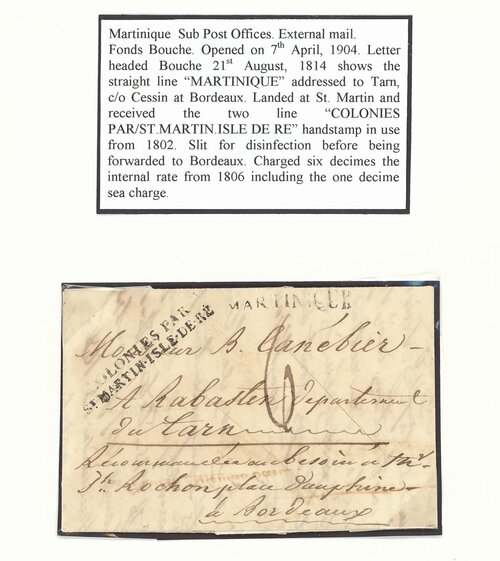 Martinique Sub Post Offices. External mail.
Fonds Bouche. Opened on 7th April, 1904. Letter
headed Bouche 21st August, 1814 shows the
straight line “MARTINIQUE” addressed to Tarn,
c/o Cessin at Bordeaux. Landed at St. Martin and
received the two line “COLONIES
PAR/ST.MARTIN.ISLE DE RE” handstamp in use
from 1802. Slit for disinfection before being
forwarded to Bordeaux. Charged six decimes the
internal rate from 1806 including the one decime
sea charge.
MARTINIQUE
COLONIES PAR
ST MARTIN·ISLE·DE·RÉ
Monsieur B. Canébier
6
A Rabasten département
du Tarn
Récommandée au besoin à Mr
Jh Rochon place Dauphine
à Bordeaux